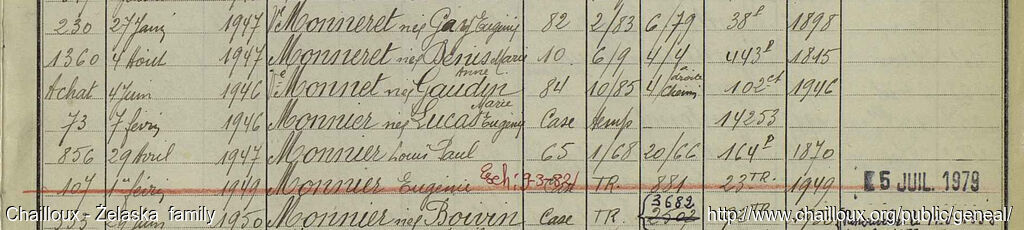 230 27 Juin 1947 Ve Monneret née Gay Eugénie 82 2/83 6/79 38P 1898
1360 4 Août 1947 Monneret née Denis Marie 10 6/9 4/4 443P 1815
Anne
Achat 4 Juin 1946 Ve Monnet née Gaudin 84 10/85 4/ droite Chemin 102ct 1946
Marie
73 7 févr 1946 Monnier née Lucas Eugénie Case temp 14253
856 29 Avril 1947 Monnier Louis Paul 65 1/68 20/66 164P 1870
107 1er févr 1949 Monnier Eugénie Ech: 9-3-82 TR. 881 23TR. 1949 5 JUIL. 1979
1950 Monnier née Boivin Case TR. 3682
Chailloux - Żelaska family http://www.chailloux.org/public/geneal/